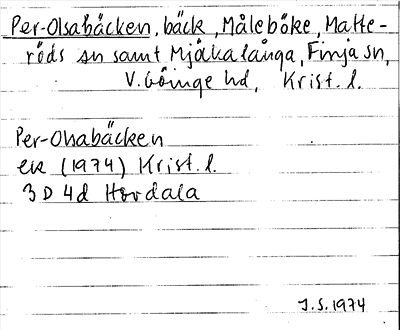 Per-Olsabäcken, bäck, Måleböke, Matte-
röds sn samt Mjölkalånga, Finja sn,
V. Göinge hd, Krist. l.
Per-Olsabäcken
ek (1974) Krist. l.
3 D 4d Hordala
J.S. 1974